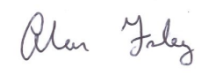 Alan Foley